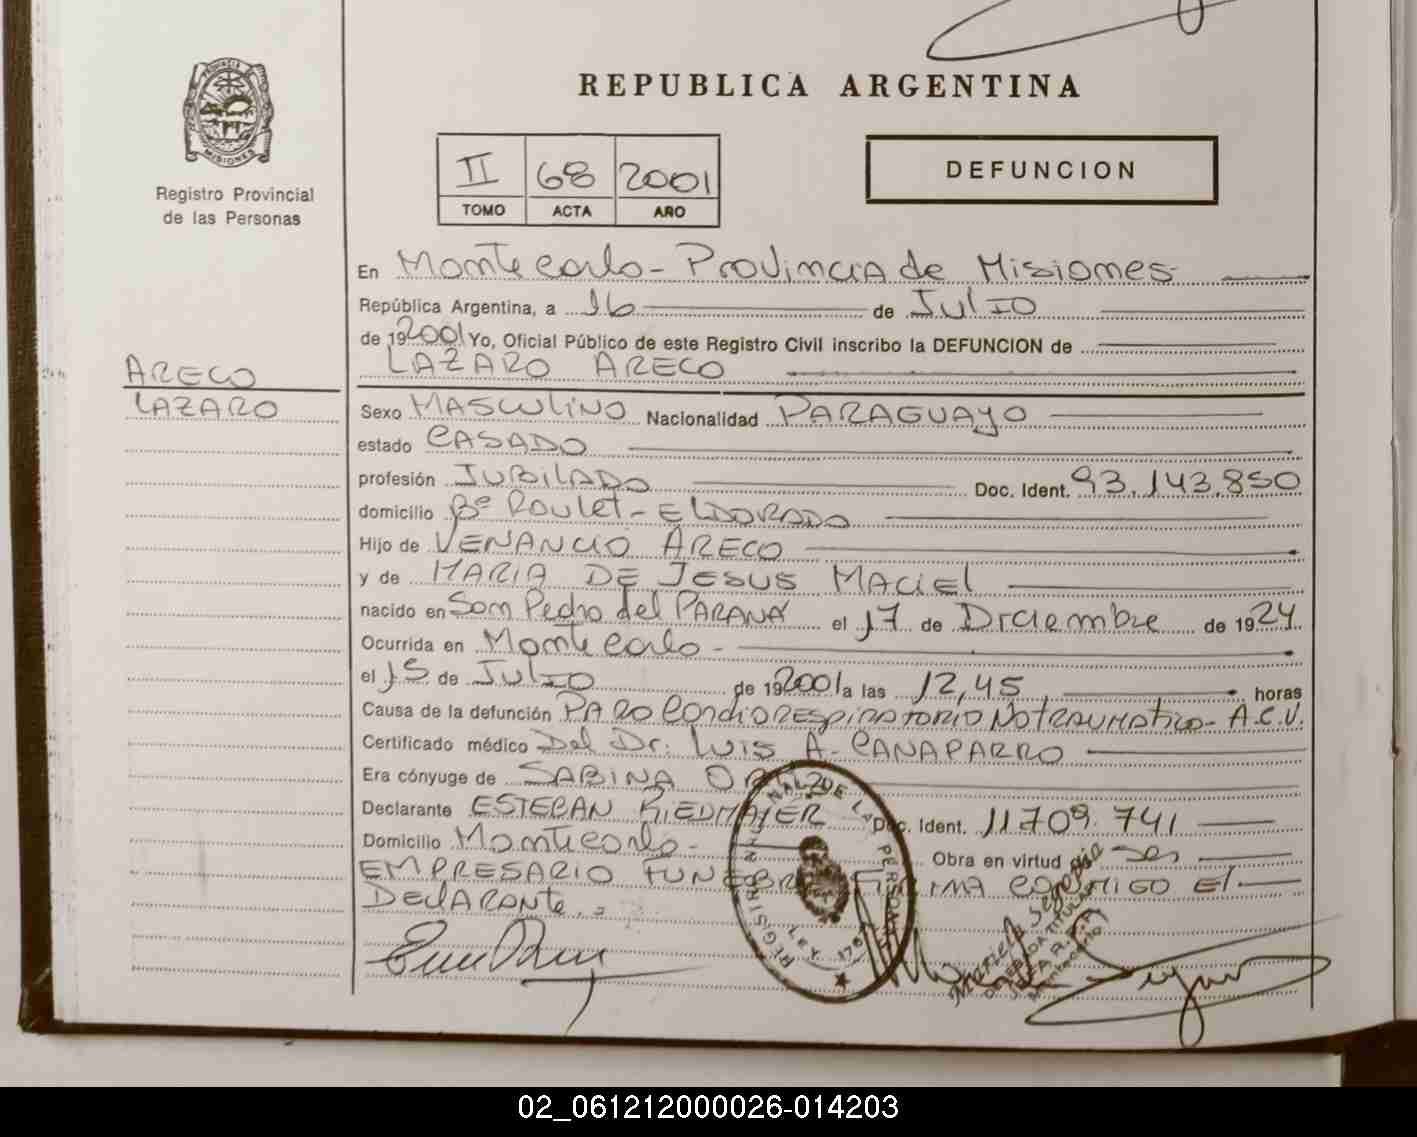 REPUBLICA ARGENTINA
PROVINCIA DE MISIONES
Registro Provincial
de las Personas
II 68 2001
TOMO ACTA AÑO
DEFUNCION
En Montecarlo - Provincia de Misiones
República Argentina, a 16 de Julio
de 192001 Yo, Oficial Público de este Registro Civil inscribo la DEFUNCION de
LAZARO ARECO
ARECO
LAZARO
Sexo MASCULINO Nacionalidad PARAGUAYO
estado CASADO
profesión JUBILADO Doc. Ident. 93.143.850
domicilio Bº Roulet - ELDORADO
Hijo de VENANCIO ARECO
y de MARIA DE JESUS MACIEL
nacido en San Pedro del PARANA el 17 de Diciembre de 1924
Ocurrida en Montecarlo -
el 15 de Julio de 192001 a las 12,45 horas
Causa de la defunción PARO CardioRESPIRATORIO NO TRAUMATICO - A.C.V.
Certificado médico Del Dr. LUIS A. CANAPARRO
Era cónyuge de SABINA
Declarante ESTEBAN RIEDMAYER Doc. Ident. 11709.741
Domicilio Montecarlo - Obra en virtud de ser
EMPRESARIO FUNEBRE FIRMA CONMIGO El
DEClARANte.
REGISTRO NACIONAL DE LAS PERSONAS
LEY
Mariela
DELEGADA TITULAR
Montecarlo
02_061212000026-014203